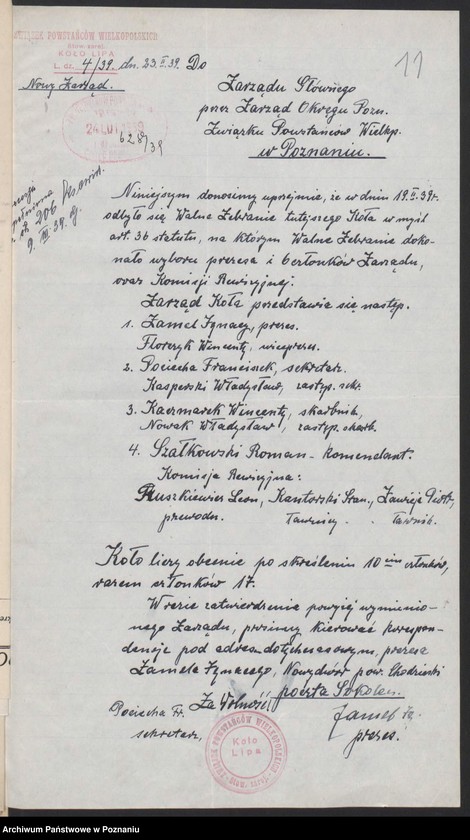 ZWIĄZEK POWSTAŃCÓW WIELKOPOLSKICH
KOŁO LIPA
L. dz. 4/39. dn. 23.II.39. Do
11
Nowy Zarząd.
Zarządu Głównego
przez Zarząd Okręgu Pozn.
Związku Powstańców Wielkp.
w Poznaniu.
628/39
206
9. III. 39.
Niniejszym donosimy uprzejmie, że w dniu 19.II.39r.
odbyło się Walne Zebranie tutejszego Koła w myśl
art. 36 statutu, na którym Walne Zebranie doko-
nało wyboru prezesa i 6 członków Zarządu,
oraz Komisji Rewizyjnej.
Zarząd Koła przedstawia się następ.
1. Zamel Ignacy, prezes.
Florczyk Wincenty, wiceprezes.
2. Pociecha Franciszek, sekretarz.
Kasperski Władysław, zastęp. sekr.
3. Kaczmarek Wincenty, skarbnik,
Nowak Władysław, zastęp. skarb.
4. Szałkowski Roman - komendant.
Komisja Rewizyjna:
Pluszkiewicz Leon, Kantorski Stan., Zawieja Piotr,
przewodn. ławniczy ławnik.
Koło liczy obecnie po skreśleniu 10 ciu członków,
razem członków 17.
W razie zatwierdzenia powyżej wymienio-
nego Zarządu, prosimy kierować korespon-
dencje pod adresem dotychczasowym, prezesa
Zamela Ignacego, Nowydwór pow. Chodzieski
poczta
Za Wolność!
Pociecha Fr.
sekretarz,
Zamel Ig.
prezes.
ZWIĄZEK POWSTAŃCÓW WIELKOPOLSKICH
Koło
Lipa
Archiwum Państwowe w Poznaniu